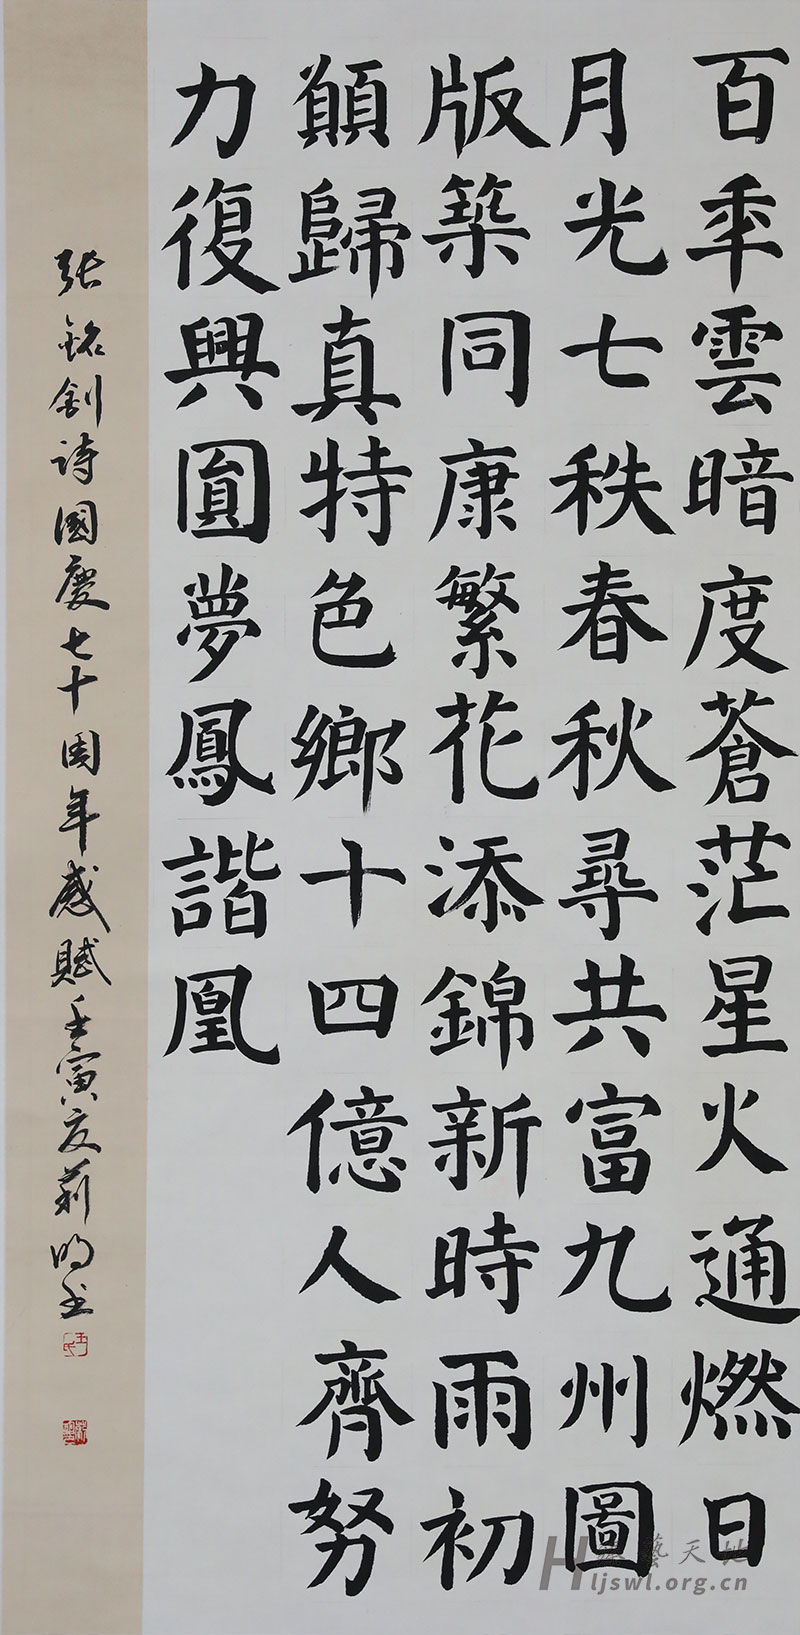 百年雲暗度蒼茫星火通燃日
月光七秩春秋尋共富九州圖
版築同康繁花添錦新時雨初
願歸真特色鄉十四億人齊努
力復興圓夢鳳諧凰
張銘釗詩國慶七十周年感賦壬寅夏莉明书
王氏
藝天地
Hljswl.org.cn